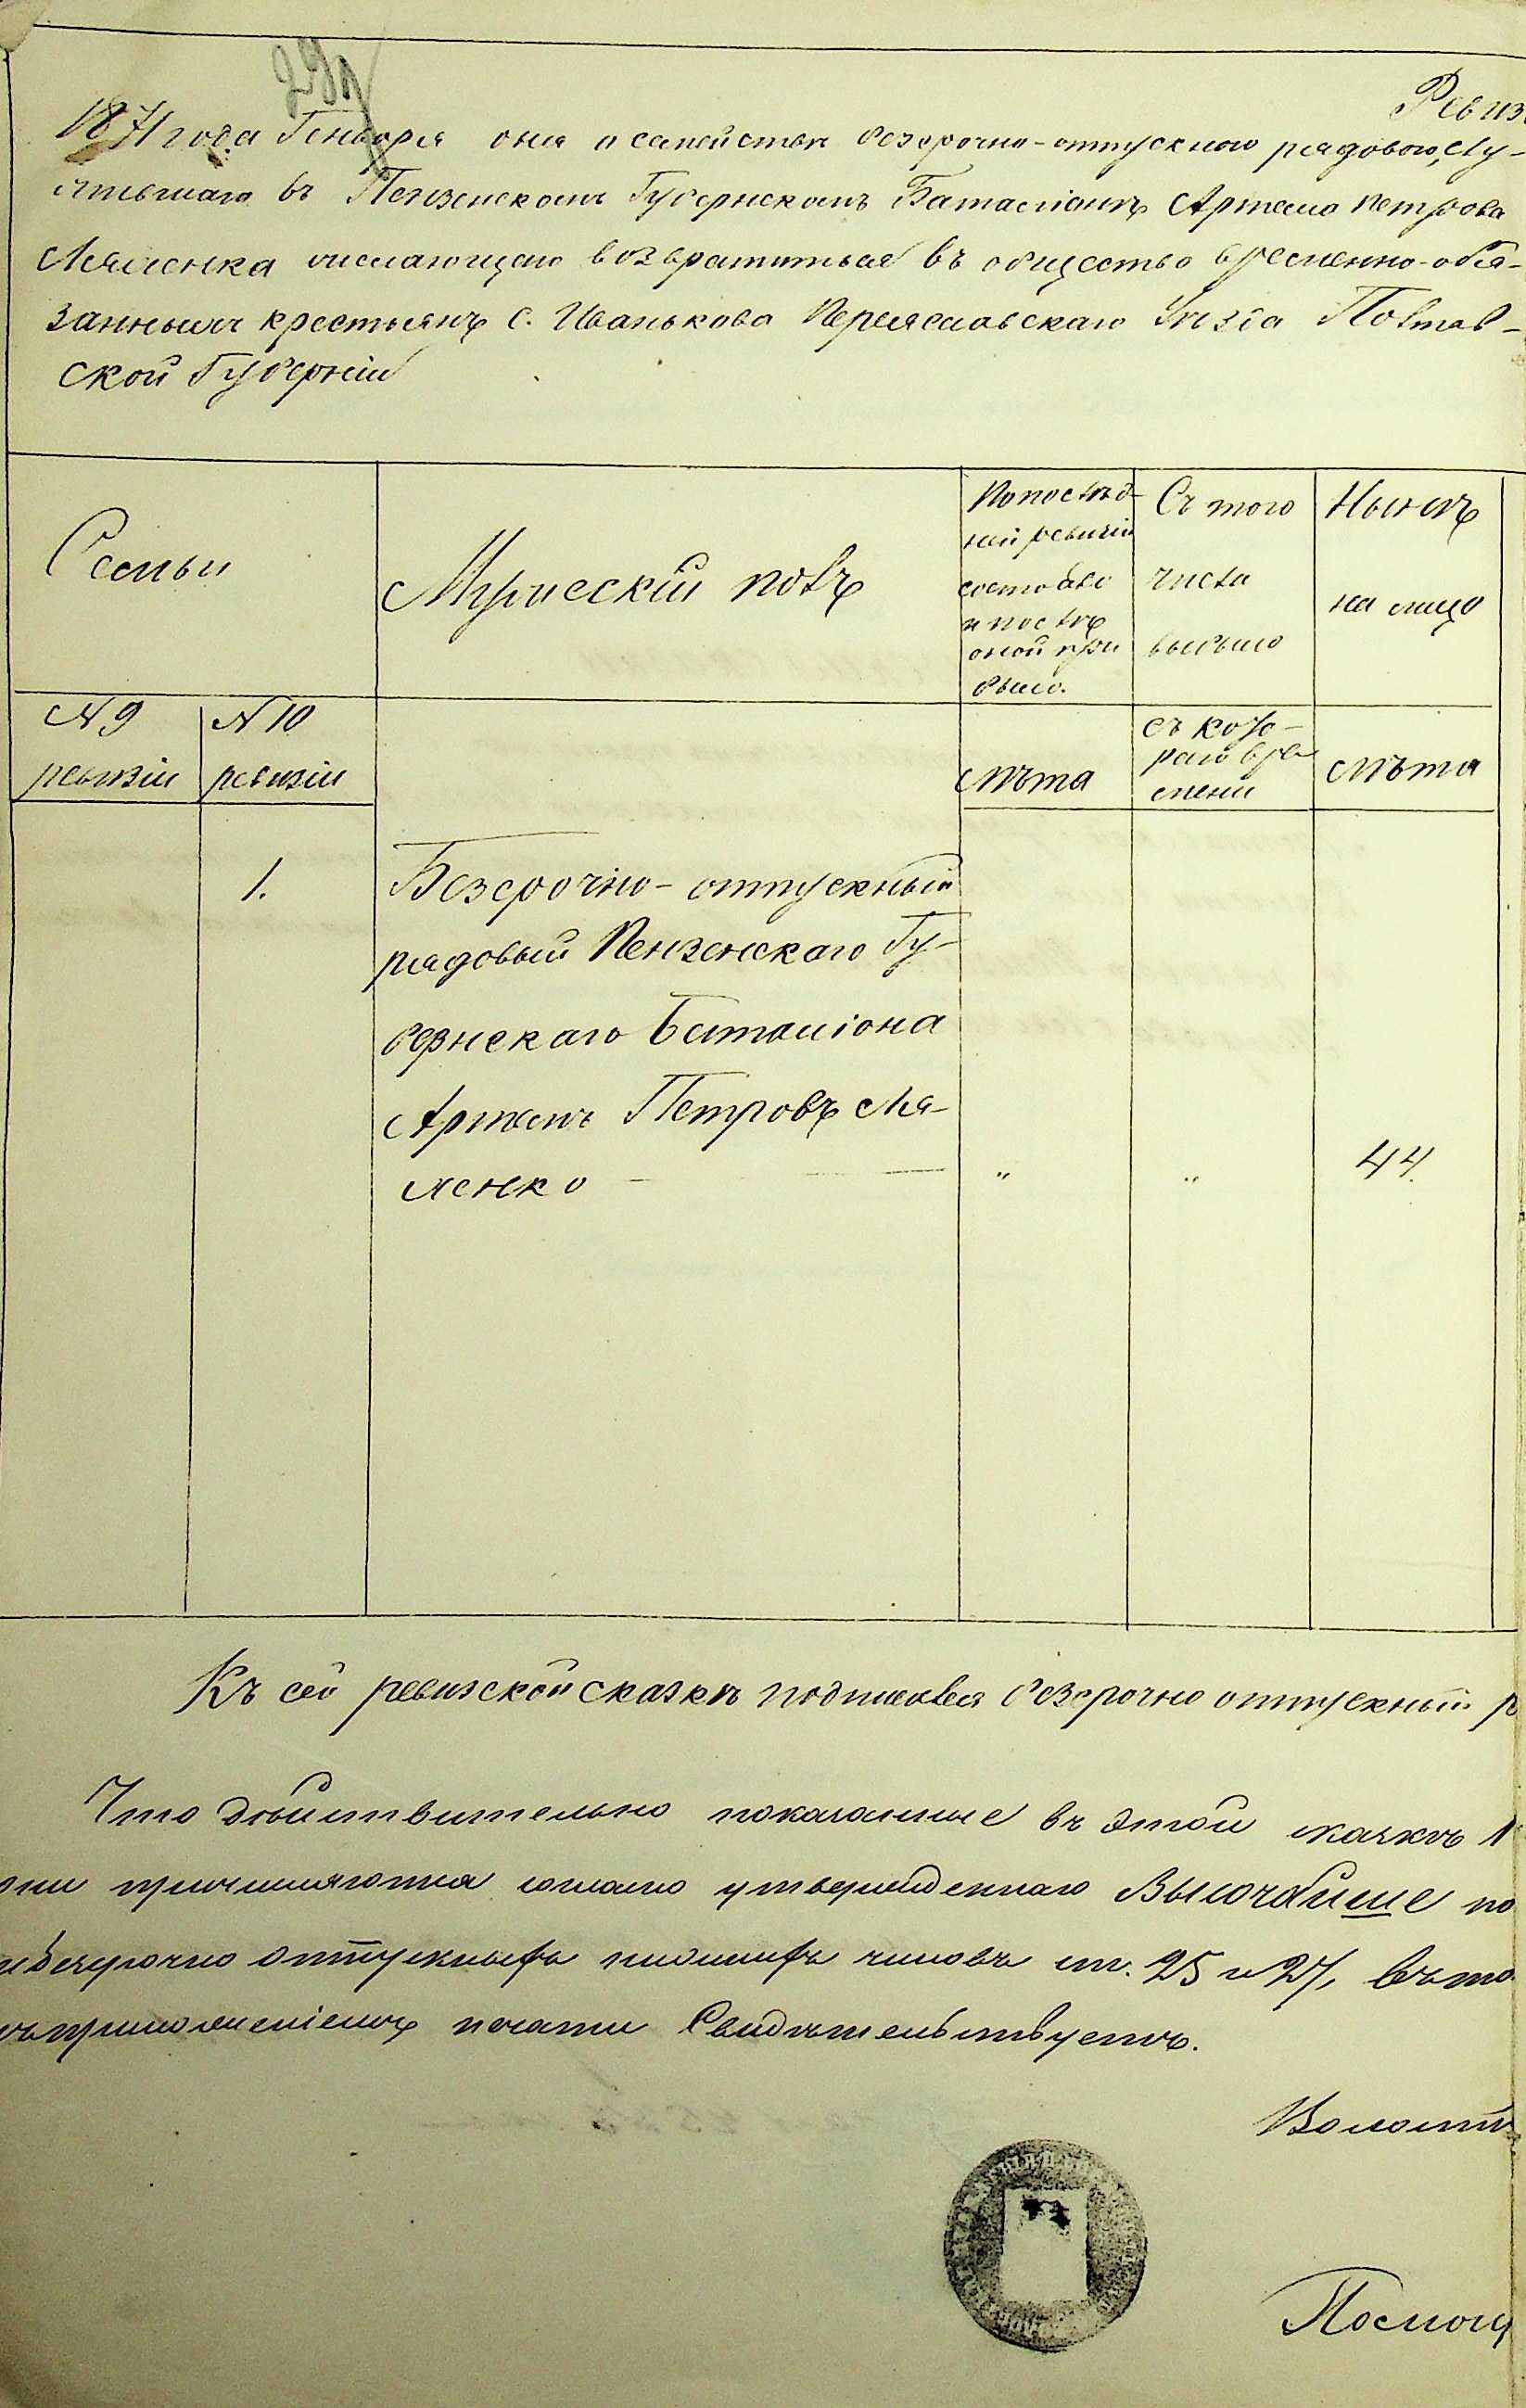 291
Ревиз
1871 года Генваря дня о семействѣ безсрочно-отпускного рядового, слу-
жившаго въ Пензенскомъ Губернскомъ Баталіонѣ Артема Петрова
Ляшенка желающаго возвратиться въ общество временно-обя-
занныхъ крестьянъ с. Иванькова Переяславскаго Уѣзда Полтав-
ской Губерніи
Семьи
Мужескій полъ
По послѣд-
ней ревизіи
состояло
и послѣ
оной при
было.
Съ того
числа
выбыло
Нынѣ
на лицо
№ 9
ревизіи
№ 10
ревизіи
лѣта
съ кото-
раго вре
мени
лѣта
1.
Безсрочно-отпускный
рядовый Пензенскаго Гу-
бернскаго Баталіона
Артемъ Петровъ Ля-
шенко — — " " 44.
Къ сей ревизской сказкѣ подписался безсрочно отпускный р
Что дѣйствительно показанные въ этой сказкѣ
они причисляются согласно утвержденнаго Высочайше по
безсрочно отпускныхъ нижнихъ чиновъ ст. 25 и 27, въ то
съ приложеніемъ печати Свидѣтельствуетъ.
Волостн
Помощ